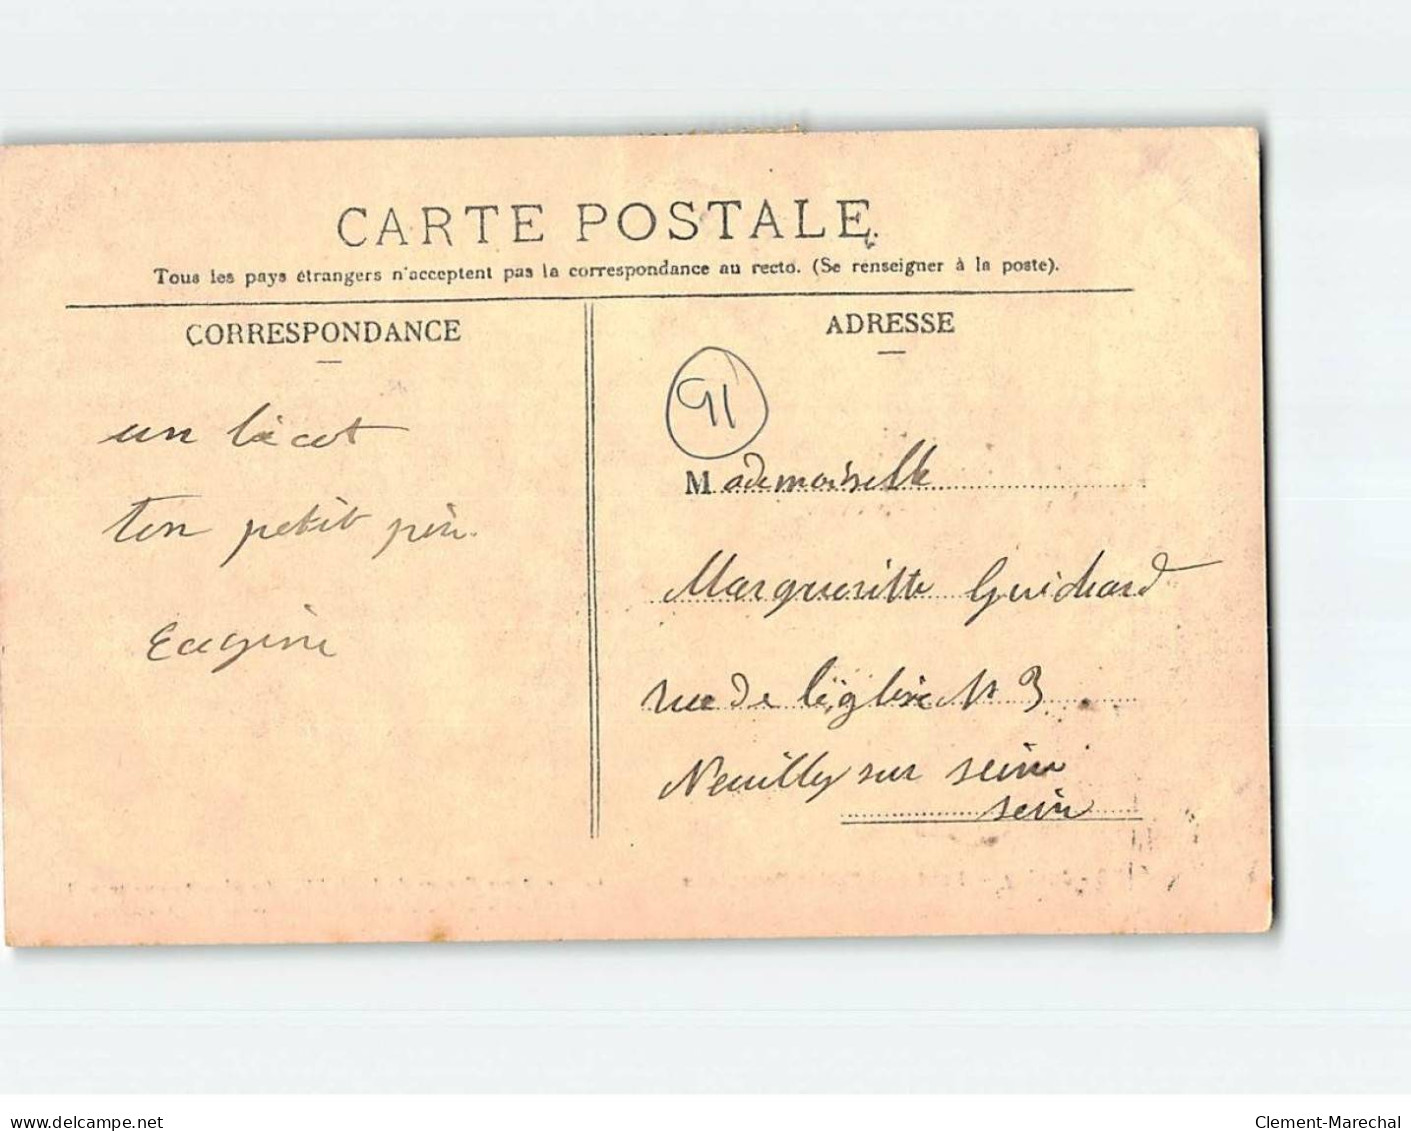 CARTE POSTALE
Tous les pays étrangers n'acceptent pas la correspondance au recto. (Se renseigner à la poste).
CORRESPONDANCE
un bécot
ton petit
Eugène
ADRESSE
91
Mademoiselle
Marguerite Guichard
rue de l'église N 3
Neuilly sur seine
seine
www.delcampe.net
Clement-Marechal